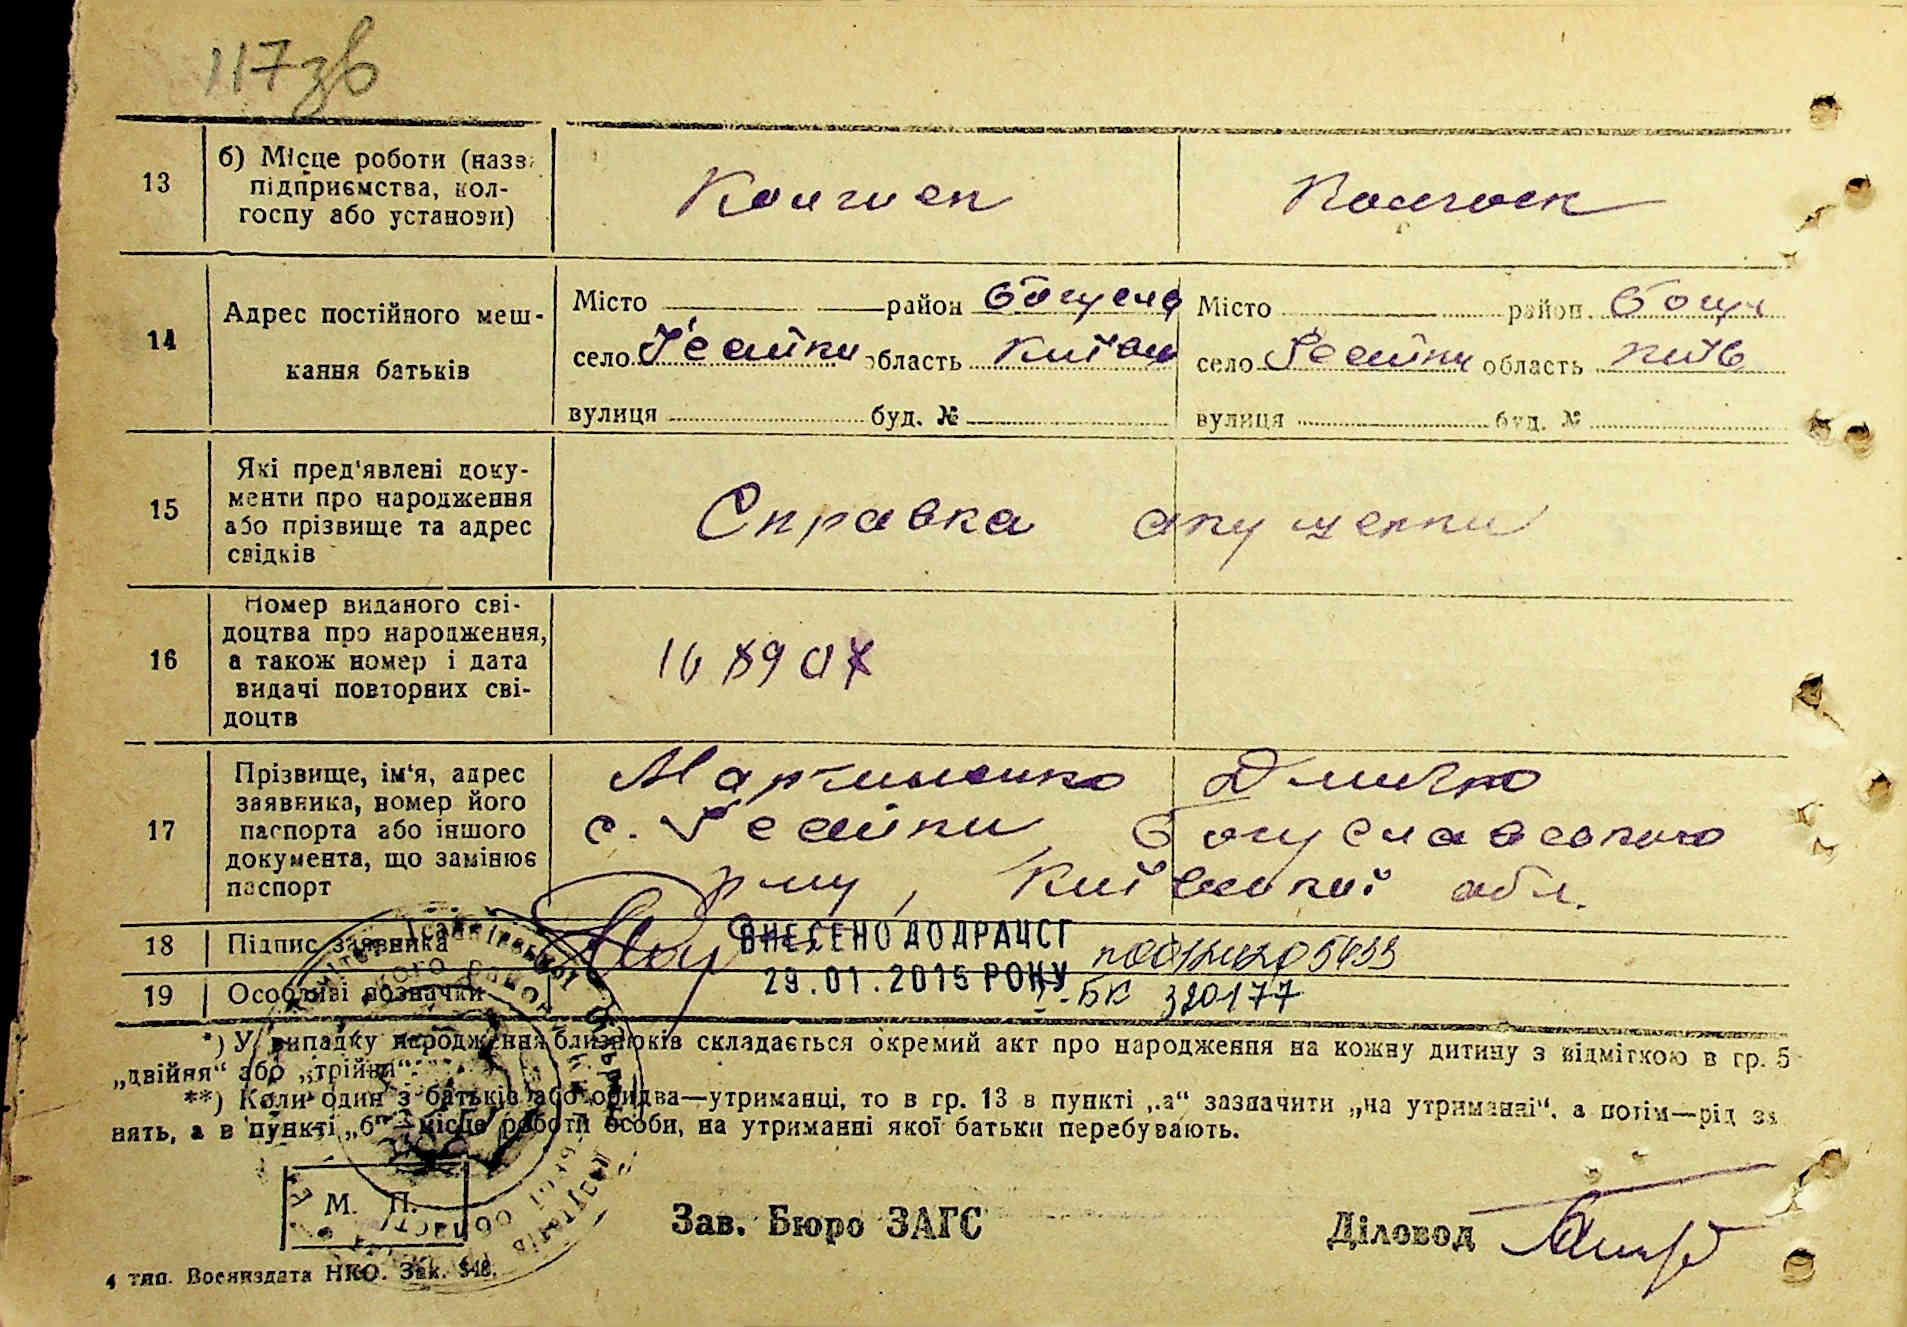 117зв
13
б) Місце роботи (назва
підприємства, кол-
госпу або установи)
Колгосп
Колгосп
14
Адрес постійного меш-
кання батьків
Місто район Богуслав
село Ісайки область Київськ
вулиця буд. №
Місто район Богусл
село Ісайки область Київ
вулиця буд. №
15
Які пред'явлені доку-
менти про народження
або прізвище та адрес
свідків
Справка акушерки
16
Номер виданого сві-
доцтва про народження,
а також номер і дата
видачі повторних сві-
доцтв
17
Прізвище, ім'я, адрес
заявника, номер його
паспорта або іншого
документа, що замінює
паспорт
Мартиненко Дмитро
с. Ісайки, Богуславського
р-ну, Київської обл.
18
Підпис заявника
ВНЕСЕНО ДО ДРАЦСГ
29.01.2015 РОКУ
19
Особливі позначки
І-БК 320177
*) У випадку народження близнюків складається окремий акт про народження на кожну дитину з відміткою в гр. 5
„двійня“ або „трійня“.
**) Коли один з батьків або обидва—утриманці, то в гр. 13 в пункті „а“ зазначити „на утриманні“, а потім—рід за
нять, а в пункті „б“—місце роботи особи, на утриманні якої батьки перебувають.
М. П.
Зав. Бюро ЗАГС
Діловод
4 тип. Воениздата НКО. Зак. 548.